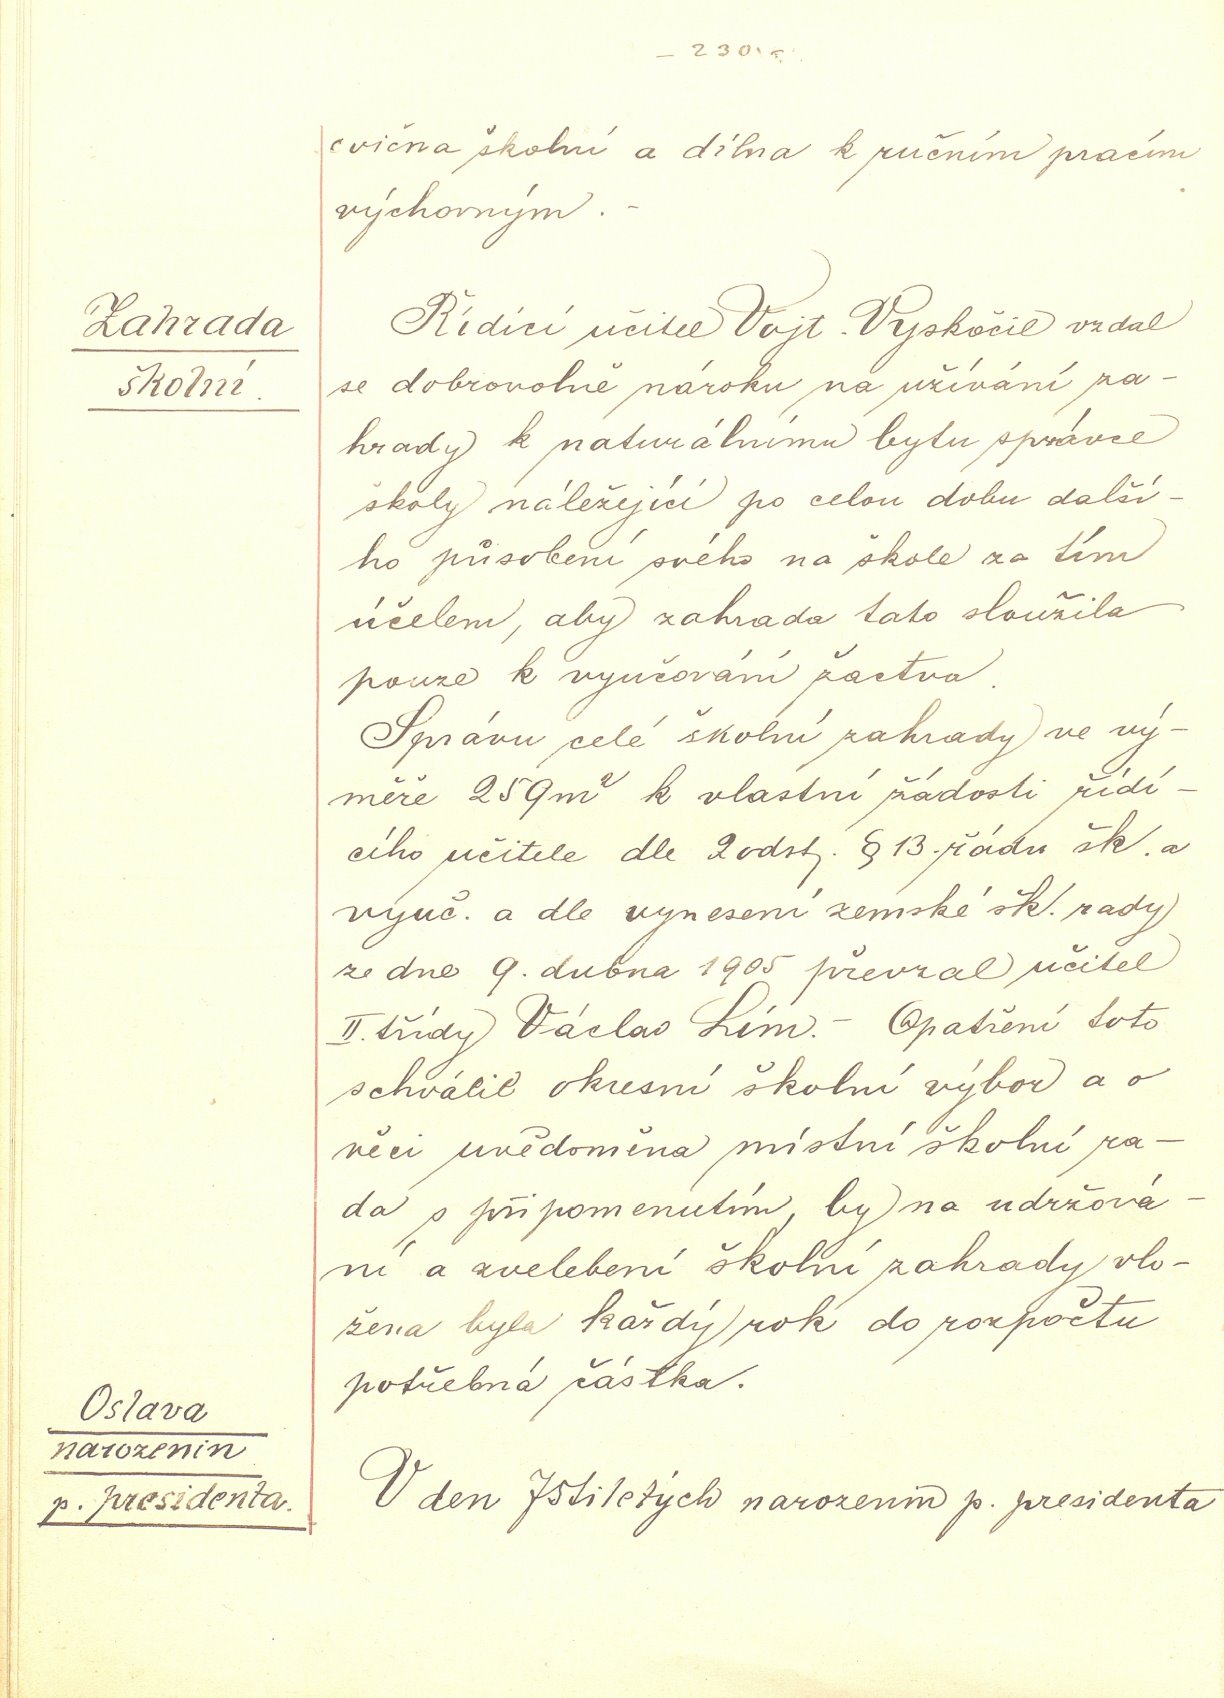 – 230 –
cvična školní a dílna k ručním pracím
výchovným. –
Zahrada
školní.
Řídící učitel Vojt. Vyskočil vzdal
se dobrovolně nároku na užívání za-
hrady k naturálnímu bytu správce
školy náležející po celou dobu další-
ho působení svého na škole za tím
účelem, aby zahrada tato sloužila
pouze k vyučování žactva.
Správu celé školní zahrady ve vý-
měře 259 m² k vlastní žádosti řídí-
cího učitele dle 2 odst. § 13. řádu šk. a
vyuč. a dle vynesení zemské šk. rady
ze dne 9. dubna 1905 převzal učitel
II. třídy Václav Lím. – Opatření toto
schválil okresní školní výbor a o
věci uvědoměna místní školní ra-
da s připomenutím, by na udržová-
ní a zvelebení školní zahrady vlo-
žena byla každý rok do rozpočtu
potřebná částka.
Oslava
narozenin
p. presidenta.
V den 75tiletých narozenin p. presidenta